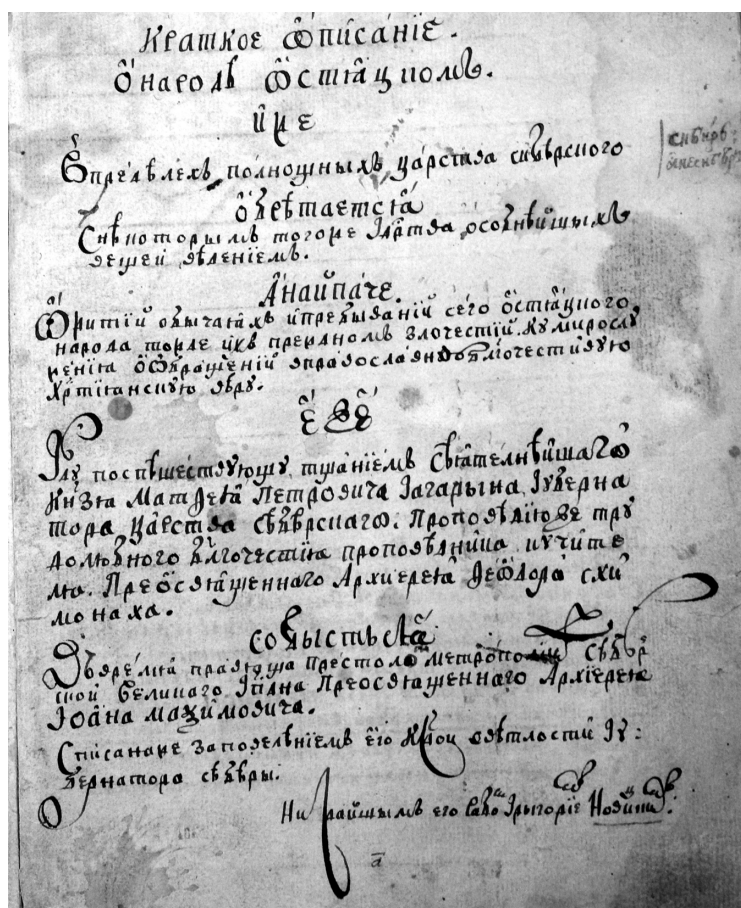 Краткое ѿписаніе.
ѽ народѣ ѽстѧцкомъ.
иже
Впределехъ полнощныхъ царства сибѣрского
ѡбрѣтаетсѧ
Снѣкоторымъ тогоже царства ѡсобнѣйшыхъ
вещей ѡвленіемъ.
Анайпаче.
Ѽжитій обычаѧхъ ипребываній сего ѽстѧцкого
народа тожде ихъ прежномъ злочестій кумирослу
женіѧ ѽѡбращеній вправославнѹюбл҃гочестивую
хр҃тіѧнскую вѣру.
ЕЖЕ
поспѣшествующу тщаніемъ сіѧтелнѣйшагѡ
Кнѧзѧ Матѳеѧ Петровича Гагарына, губерна
тора царства сибѣрскагѡ: Проповѣдію же тру
долюбного бл҃гочестіѧ проповѣдника, иучите
лѧ. Преосвѧщенного Архиереѧ Ѳеѡдора схи
монаха.
событьсѧ
Вовремѧ правѧща престолъ метрополіи сибѣр
ской великаго г҃пдна Преосвященного Архиереѧ
Іѡана маѯимовича.
Списанаже заповелѣніемъ его кнѧж свѣтлостій гу:
бернатора сибѣры.
Ни жайшымъ его рабомъ Григоріе Новицкимъ.
а